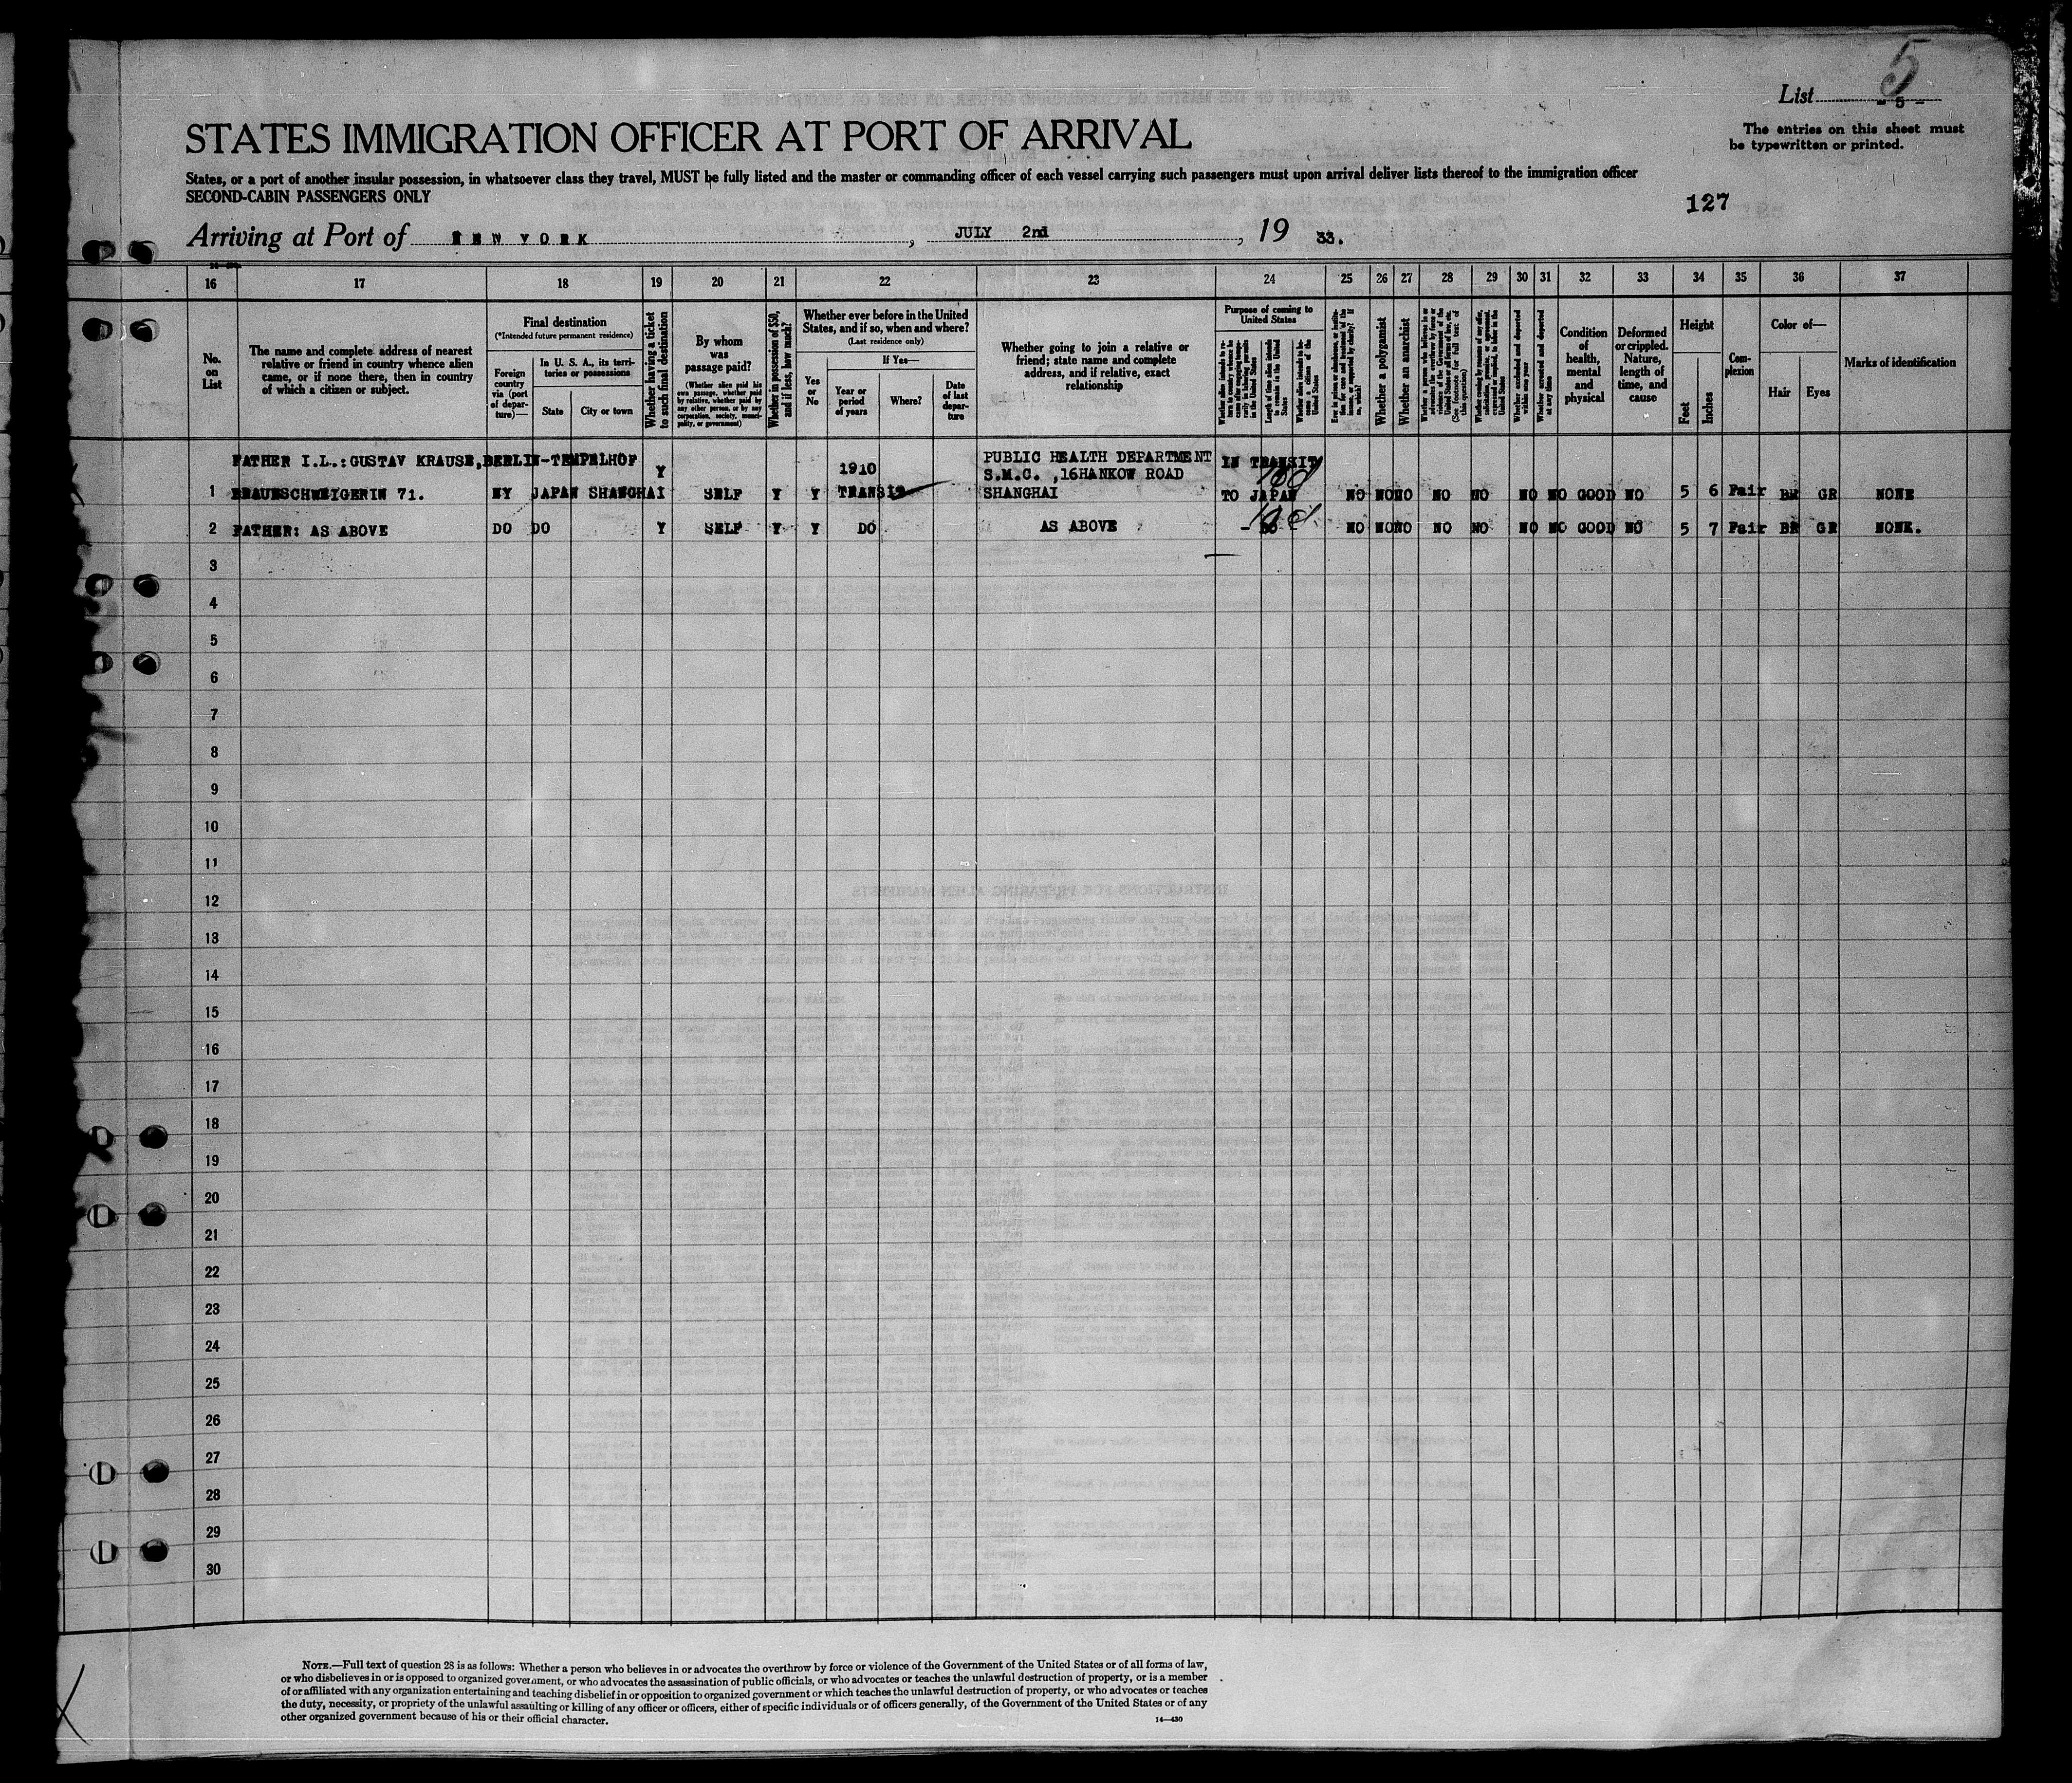 5
List - 5 -
The entries on this sheet must
be typewritten or printed.
STATES IMMIGRATION OFFICER AT PORT OF ARRIVAL
States, or a port of another insular possession, in whatsoever class they travel, MUST be fully listed and the master or commanding officer of each vessel carrying such passengers must upon arrival deliver lists thereof to the immigration officer
SECOND-CABIN PASSENGERS ONLY
127
Arriving at Port of NEW YORK, JULY 2nd, 19 33.
16 17 18 19 20 21 22 23 24 25 26 27 28 29 30 31 32 33 34 35 36 37
No. on List
The name and complete address of nearest
relative or friend in country whence alien
came, or if none there, then in country
of which a citizen or subject.
Final destination
(*Intended future permanent residence)
Foreign country via (port of departure)—
In U. S. A., its territories or possessions
State
City or town
Whether having a ticket to such final destination
By whom was passage paid?
(Whether alien paid his own passage, whether paid by relative, whether paid by any other person, or by any corporation, society, municipality, or government)
Whether in possession of $50, and if less, how much?
Whether ever before in the United
States, and if so, when and where?
(Last residence only)
Yes or No
If Yes—
Year or period of years
Where?
Date of last departure
Whether going to join a relative or
friend; state name and complete
address, and if relative, exact
relationship
Purpose of coming to United States
Length of time alien intends to remain in the United States
Whether alien intends to become a citizen of the United States
Whether a polygamist
Whether an anarchist
(See footnote for full text of this question)
Whether excluded and deported within one year
Whether arrested and deported at any time
Condition of health, mental and physical
Deformed or crippled. Nature, length of time, and cause
Height
Feet
Inches
Complexion
Color of—
Hair
Eyes
Marks of identification
FATHER I.L.:GUSTAV KRAUSE,BERLIN-TEMPELHOF Y 1910 PUBLIC HEALTH DEPARTMENT IN TRANSIT
S.M.C. ,16HANKOW ROAD
1 BRAUNSCHWEIGERIN 71. NY JAPAN SHANGHAI SELF Y Y TRANSIT SHANGHAI TO JAPAN NO NO NO NO NO NO NO GOOD NO 5 6 Fair BR GR NONE
2 FATHER: AS ABOVE DO DO Y SELF Y Y DO AS ABOVE - DO NO NO NO NO NO NO NO GOOD NO 5 7 Fair BR GR NONE.
3
4
5
6
7
8
9
10
11
12
13
14
15
16
17
18
19
20
21
22
23
24
25
26
27
28
29
30
NOTE.—Full text of question 28 is as follows: Whether a person who believes in or advocates the overthrow by force or violence of the Government of the United States or of all forms of law,
or who disbelieves in or is opposed to organized government, or who advocates the assassination of public officials, or who advocates or teaches the unlawful destruction of property, or is a member
of or affiliated with any organization entertaining and teaching disbelief in or opposition to organized government or which teaches the unlawful destruction of property, or who advocates or teaches
the duty, necessity, or propriety of the unlawful assaulting or killing of any officer or officers, either of specific individuals or of officers generally, of the Government of the United States or of any
other organized government because of his or their official character.
14—430